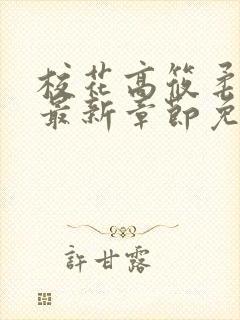 校花高筱柔
最新章節免
許甘露